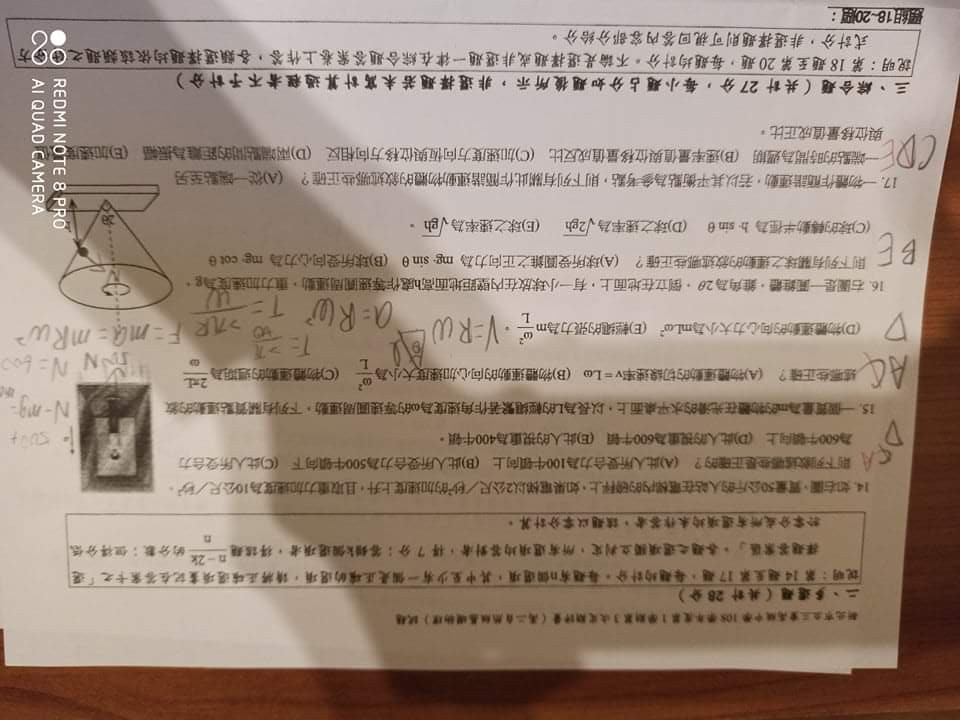 新北市立三重高級中學108學年度第1學期第3次定期評量(高二自然組基礎物理)試題
二、多選題(共計28分)
說明:第14題至第17題,每題均計分。每題有n個選項,其中至少有一個是正確的選項,請將正確選項畫記在答案卡之「選
擇題答案區」。各題之選項獨立判定,所有選項均答對者,得7分;答錯k個選項者,得該題 n−2k/n 的分數;但得分低
於零分或所有選項均未作答者,該題以零分計算。
14. 如右圖,質量50公斤的人站在電梯內的磅秤上,如果電梯以2公尺/秒²的加速度上升,且取重力加速度為10公尺/秒²,
則下列敘述哪些是正確的? (A)此人所受合力為100牛頓向上 (B)此人所受合力為500牛頓向下 (C)此人所受合力
為600牛頓向上 (D)此人的視重為600牛頓 (E)此人的視重為400牛頓。
15. 一個質量為m的物體在光滑的水平桌面上,以長為L的輕繩繫著作角速度為ω的等速圓周運動,下列有關質點運動的敘
述哪些正確? (A)物體運動的切線速率v=Lω (B)物體運動的向心加速度大小為 ω²/L (C)物體運動的週期為 2πL/ω
(D)物體運動的向心力大小為mLω² (E)輕繩的張力為m ω²/L。
16. 右圖是一圓錐體,錐角為2θ,倒立在地面上,有一小球放在內壁距地面高h處作等速圓周運動,重力加速度為g,
則下列有關球之運動的敘述哪些正確? (A)球所受圓錐之正向力為 mg·sin θ (B)球所受向心力為 mg·cot θ
(C)球的轉動半徑為 h·sin θ (D)球之速率為√2gh (E)球之速率為√gh。
17. 一物體作簡諧運動,若以其平衡點為參考點,則下列有關此作簡諧運動物體的敘述哪些正確? (A)從一端點至另
一端點的時間為週期 (B)速率量值與位移量值成反比 (C)加速度方向恆與位移方向相反 (D)兩端點間的距離為振幅 (E)加速度量值
與位移量值成正比。
三、綜合題(共計27分,每小題占分如題後所示,非選擇題若未寫計算過程者不予計分)
說明:第18題至第20題,每題均計分。不論是選擇題或非選擇題一律在綜合題答案卷上作答,各題選擇題均依該類題之計分方
式計分,非選擇題則可視回答內容部分給分。
題組18-20題:
D
AC
D
BE
CDE
N-mg=
V=Rω
a=Rω²
F=ma=mRω²
REDMI NOTE 8 PRO
AI QUAD CAMERA